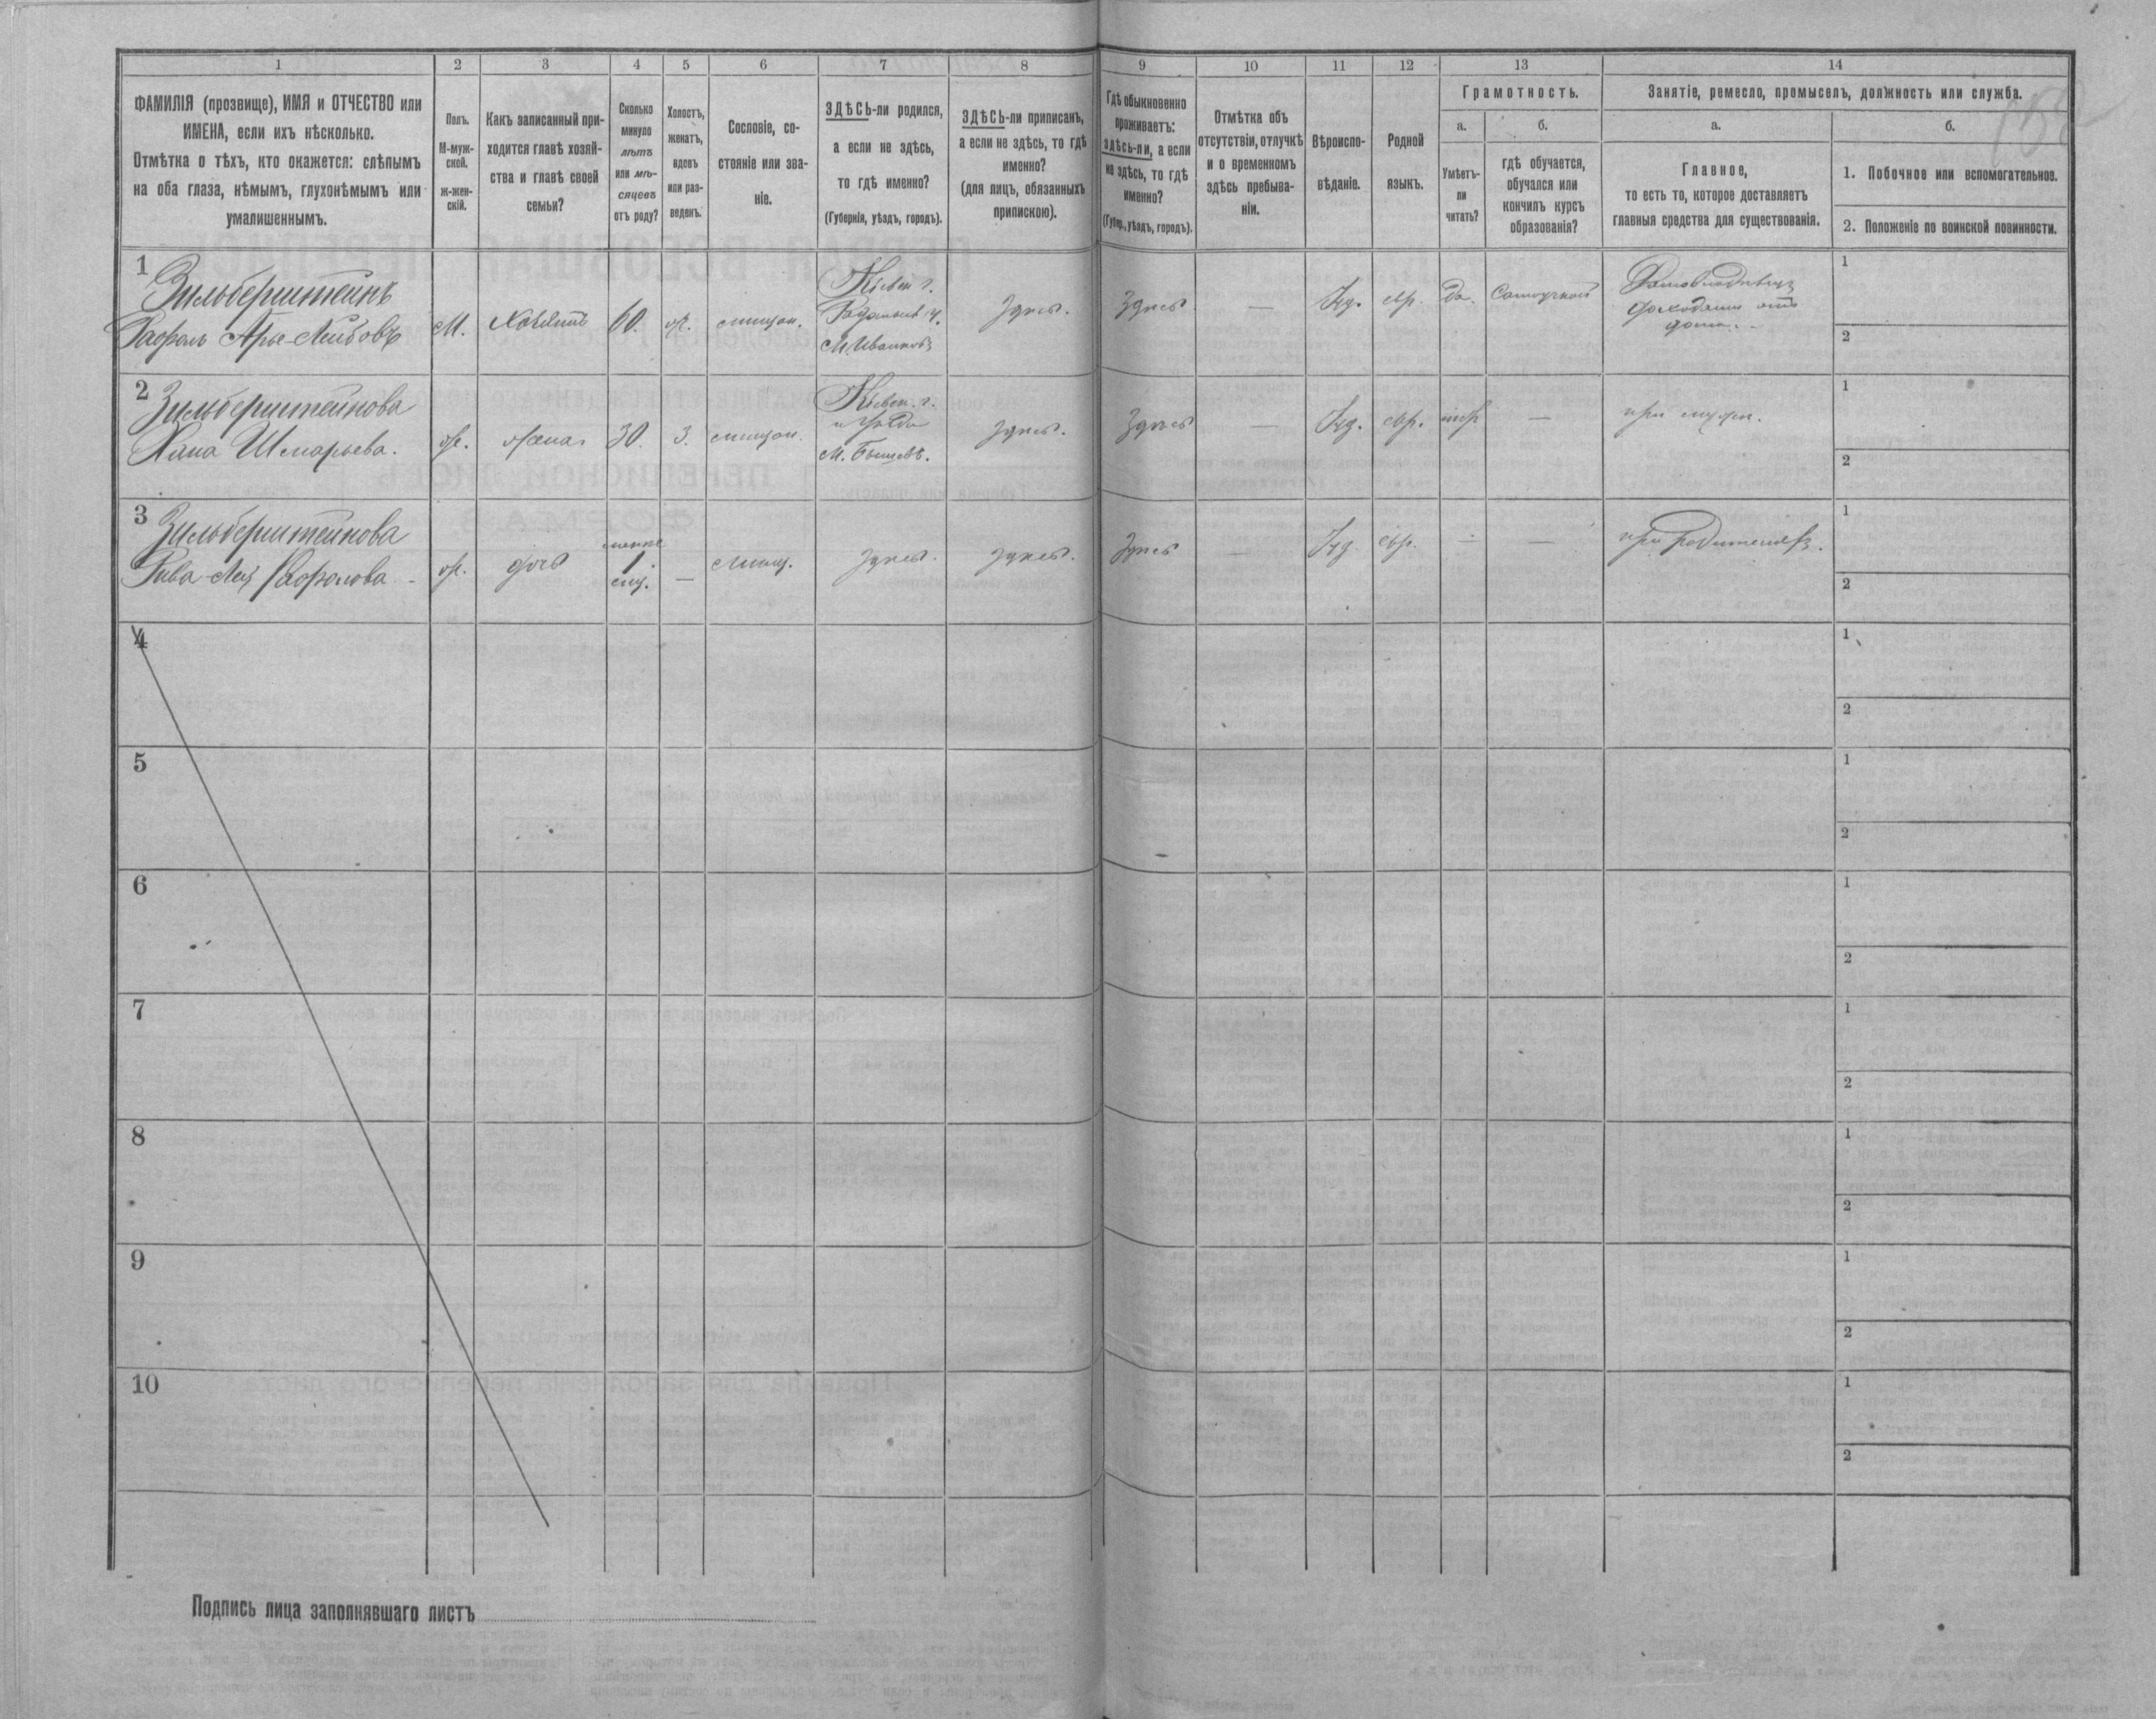 1
2
3
4
5
6
7
8
9
10
11
12
13
14
ФАМИЛІЯ (прозвище), ИМЯ и ОТЧЕСТВО или
ИМЕНА, если ихъ нѣсколько.
Отмѣтка о тѣхъ, кто окажется: слѣпымъ
на оба глаза, нѣмымъ, глухонѣмымъ или
умалишеннымъ.
Полъ.
М-муж-
ской.
ж-жен-
скій.
Какъ записанный при-
ходится главѣ хозяй-
ства и главѣ своей
семьи?
Сколько
минуло
лѣтъ
или мѣ-
сяцевъ
отъ роду?
Холостъ,
женатъ,
вдовъ
или раз-
веденъ.
Сословіе, со-
стояніе или зва-
ніе.
ЗДѢСЬ-ли родился,
а если не здѣсь,
то гдѣ именно?
(Губернія, уѣздъ, городъ).
ЗДѢСЬ-ли приписанъ,
а если не здѣсь, то гдѣ
именно?
(для лицъ, обязанныхъ
припискою).
Гдѣ обыкновенно
проживаетъ:
здѣсь-ли, а если
не здѣсь, то гдѣ
именно?
(Губер., уѣздъ, городъ).
Отмѣтка объ
отсутствіи, отлучкѣ
и о временномъ
здѣсь пребыва-
ніи.
Вѣроиспо-
вѣданіе.
Родной
языкъ.
Грамотность.
а.
б.
Умѣетъ-
ли
читать?
гдѣ обучается,
обучался или
кончилъ курсъ
образованія?
Занятіе, ремесло, промыселъ, должность или служба.
а.
б.
Главное,
то есть то, которое доставляетъ
главныя средства для существованія.
1. Побочное или вспомогательное.
2. Положеніе по воинской повинности.
1
Зильберштейнъ
Рафаль Арье-Лейбовъ
М.
Хозяинъ
60.
ж.
мѣщан.
Кіевск. г.
М. Иванковъ
здѣсь.
Здѣсь
—
Іуд.
евр.
да.
Самоучкой
доходами отъ
дома.
1
2
2
Зильберштейнова
Хана Шмарьева.
ж.
жена
30.
З.
мѣщан.
Кіевск. г.
здѣсь.
Здѣсь
—
Іуд.
евр.
нѣтъ
—
при мужѣ.
1
2
3
Зильберштейнова
Рива-Лея Рафалова
ж.
дочь
менѣе
1.
мѣс.
—
мѣщ.
здѣсь.
здѣсь.
Здѣсь
—
Іуд.
евр.
—
—
при родителяхъ.
1
2
4
1
2
5
1
2
6
1
2
7
1
2
8
1
2
9
1
2
10
1
2
Подпись лица заполнявшаго листъ